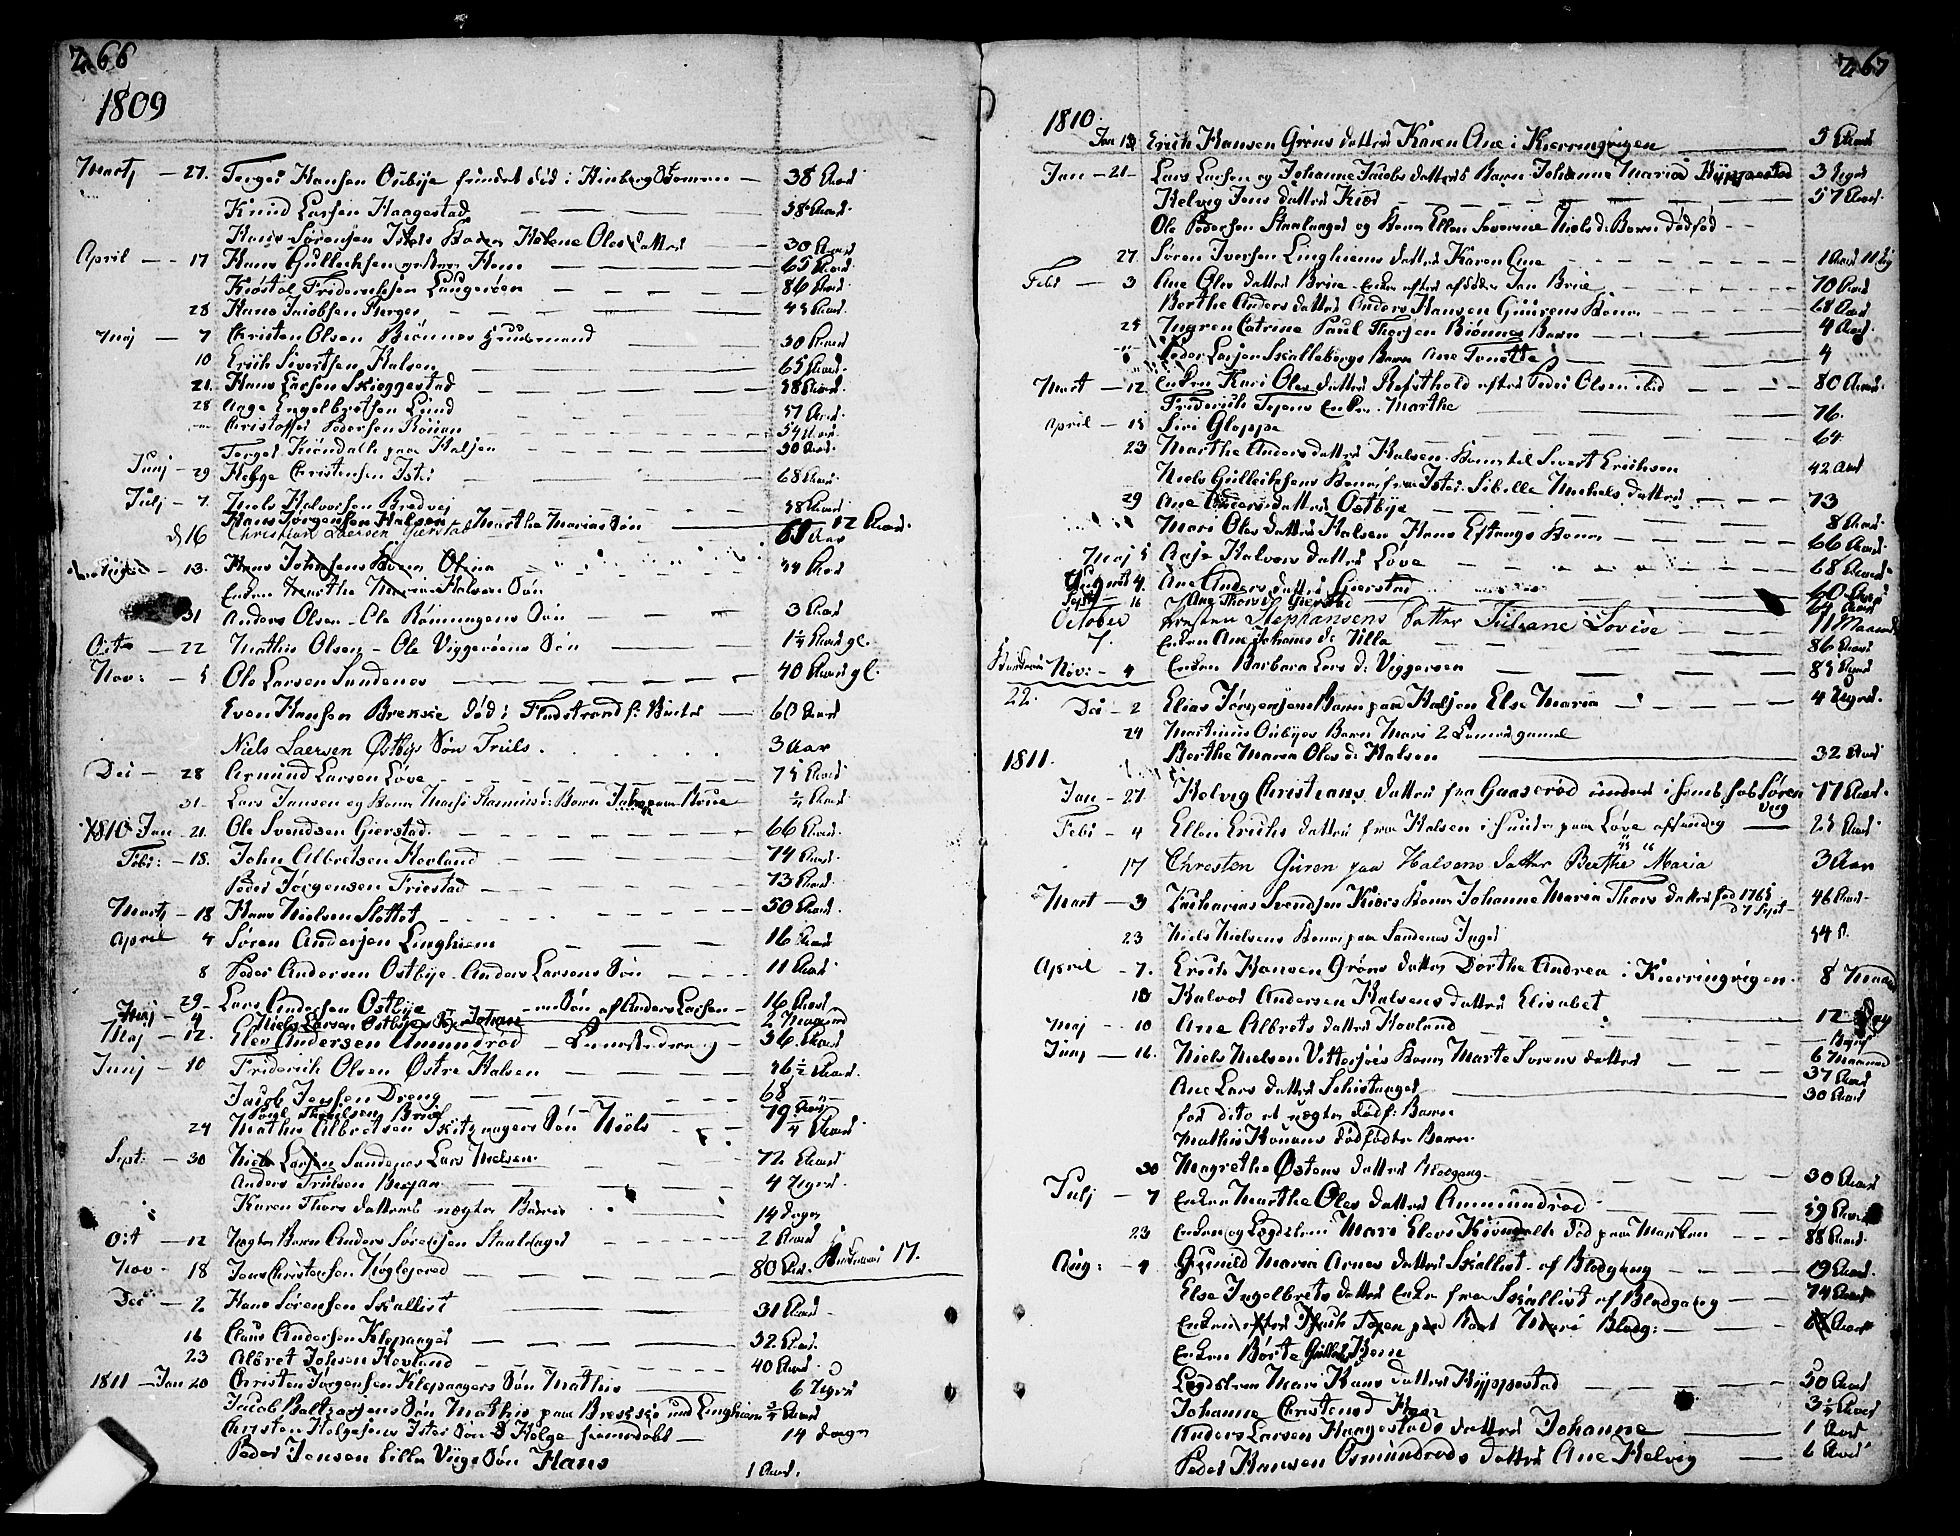 266
1809
Martj - 27. Torger Hansen Oubije fundet død i Hinberg Strømen - 38 Aar
Knud Larsen Haagestad - 38 Aar
Hans Sørensen Isteds Kone Helene Olesdatter 30 Aar
April - 17 Hans Gulliksen Hem - 65 Aar
Kiøstol Friderichsen Laugerøen - 86 Aar
28 Hans Jacobsen Berger - 43 Aar
Maj - 7 Christen Olsen Biønnes Huusmand 30 Aar
10 Erich Sivertsen Halsen - 65 Aar
21. Hans Larsen Skieggestad - 38 Aar
28 Aage Engelbretsen Lund - 57 Aar
Christoffer Pedersen Rønen - 54 Aar
Torger Kiøndahl paa Halsen - 30 Aar
Junj - 29 Helge Christensen Istre 68 Aar
Julj - 7 Niels Halvorsen Bredvej 38 Aar
Hans Jørgensen Halsen Marthe Marias Søn 12 Aar
d 16 Christian Laersen Gierstad 65 Aar
13. Hans Johansens Kone Olena 34 Aar
Enken Marthe Maria Halsens Søn
31 Anders Olsen - Ole Rønningens Søn - 3 Aar
Octo - 22 Mathis Olsen - Ole Viggerøens Søn 1 1/4 Aar gl.
Nov: - 5 Ole Larsen Sundenes - 40 Aar gl.
Even Hansen Brekke død i Fladstrand 60 Aar
Niels Laersen Østbys Søn Truls. 3 Aar
Dec - 28 Amund Larsen Løve - 75 Aar
31 - Lars Jansen og Kone Rasmusd: Barn Jahn paa Brue 1/4 Aar
1810 Jan - 21. Ole Svendsen Gierstad. 66 Aar
Febr: - 18. John Albretsen Hovland 74 Aar
Peder Jørgensen Friestad 73 Aar
Martj - 18 Hans Nielsen Slottet 50 Aar
April 4 Søren Andersen Linghiem 16 Aar
8 Peder Andersen Ostbije - Anders Larsens Søn 11 Aar
29 - Lars Andersen Ostbije - en Søn af Anders Larsen - 16 Aar
Maj 4 Niels Larsen Ostbyes Søn Johan 2 Maaned
Maj - 12. Elev Andersen Amundrød - 36 Aar
Junj - 10 Friderich Olsen Østre Halsen 46 1/2 Aar.
Jacob Jensen Dreng 68
Poul Thorsen Brue 79 Aar
24 Mathis Albretsen Skitznagers Søn Niels 1/4 Aar
Sept: - 30 Niels Larsen Sundenes Lars Nielsen. 72 Aar
Anders Trulsen Bugan 4 Uger
Karen Thorsdatters uægter Barn 14 dager
Oct - 12 Uægte Barn Anders Sørensen Staalager 2 Aar
Nov - 18 Jens Christensen Høglegerød 80 Aar. 17.
Dec - 2 Hans Sørensen Skallist 31 Aar
16 Claus Andersen Klepaager 32 Aar
23 Albret Johsen Hovland 40 Aar
1811 - Jan 20 Christen Jørgensen Klepaagers Søn Mathis 6 Uger
Jacob Baltzarsens Søn Mathis paa Brekke ved Linghiem 3/4 Aar
Christen Helgesens Istre Søn Helge hiemedøbt - 14 dager
Peder Jensen Lille Viiges Søn Hans 1 Aar.
267
1810.
Jan 13 Erich Hansen Grøns datter Karen Ane i Kierringvigen 5 Aar
Jan - 21 - Lars Larsen og Johanne Jacobs datters Barn Johanne Maria Hyppestad 3 Uger
Helvig Jens datter Kiær 57 Aar.
Ole Pedersen Staalaager og Kone Ellen Severine Niels d: Barn Dødfød
27 Søren Iversen Linghiems datter Karen Ane 1 Aar 11 Ug
Febr - 3 Ane Oles datter Brue - Enke efter afdøde Jan Brue 70 Aar
Berthe Anders datter Anders Hansen Guurens Kone 68 Aar
25 Ingren Catrine Paul Thorsen Biønnes Barn 4 Aar
Peder Larsen Skalleborgs Barn Ane Tonette 4
Mart - 12 Enken Kari Oles datter Refsthold efter Peder Olsen ibid 80 Aar.
Friderich Tyjens Enke. Marthe 76.
April - 15 Siri Gloppe 64
23 Marthe Anders datter Halsen. Kone til Sivert Erichsen 42 Aar
Niels Gulliksens Kone fra Istre. Sibille Michels datter 73
29 Ane Anders datter Ostbije 8 Aar
Mari Oles datter Halsen Hans Eftangs Kone 66 Aar
Maj 5 Aase Halvors datter Løve 68 Aar
August 4. Ane Anders datter Gierstad 60 Aar
Sept 16 Ane Thorsd: Gierstad 64 Aar
October Presten Stephansens Datter Juliane Lovise 11 Maaned
7. Enken Ane Johans d: Nilla 86 Aar
Nov: - 4 Enken Barbara Lars d: Viggersen 83 Aar
22.
Dec - 2 Elias Jørgensens Barn paa Halsen Else Maria 4 Uger.
24 Martinius Oubijes Barn Mari 2 Timer gamel
1811. Berthe Maria Oles d: Halsen 32 Aar
Jan - 27 Helvig Christians datter fra Gaaserød 77 Aar.
Febr - 4 Ellen Erichs datter fra Halsen paa Løve 25 Aar
17 Chresten Guren paa Halsens datter Berthe Maria 3 Aar
Mart - 3 Zacharias Svendsen Kiærs Kone Johanne Maria Thors datter fød 1765 d 7 Sept - 46 Aar -
23 Niels Nielsens Kone paa Sandenes Inger 54 A.
April - 7. Erich Hansen Grøns datter Dorthe Andrea i Kierringvigen. 8 Maan
10 Halvor Andersen Halsens datter Elisabet 12 Dag
Maj - 10 Ane Albrets datter Hovland
Junj - 16. Niels Nielsen Vittersøes Kone Marte Sørens datter 37 Aar
Ane Lars datter Schistager 30 Aar
for dito et uægte dødf: Barn
Mathis Hovans dødfødte Barn.
30 Magrethe Østens datter Blodgang 30 Aar
Julj - 7 Enken Marthe Oles datter Ammundrød 59 Aar
23 Enken og Legdslem Mari Elevs Kiøndahl død paa Marken 88 Aar
Aug: - 4 Gunild Maria Arnes datter Skallist - af Blodgang 19 Aar.
Else Ingelbrets datter Enke fra Skallist af Blodgang 74 Aar
Enken efter Isach Tojen paa Mari Blodg:
Enken Børte Gulliks Bene
Legdslem Mari Hans datter Hyppestad 50 Aar
Johanne Christensd 3 1/4 Aar
Anders Larsen Haagestads datter Johanne 1 Aar
Peder Hansen Osmundrøds datter Ane Helvig 6 Aar